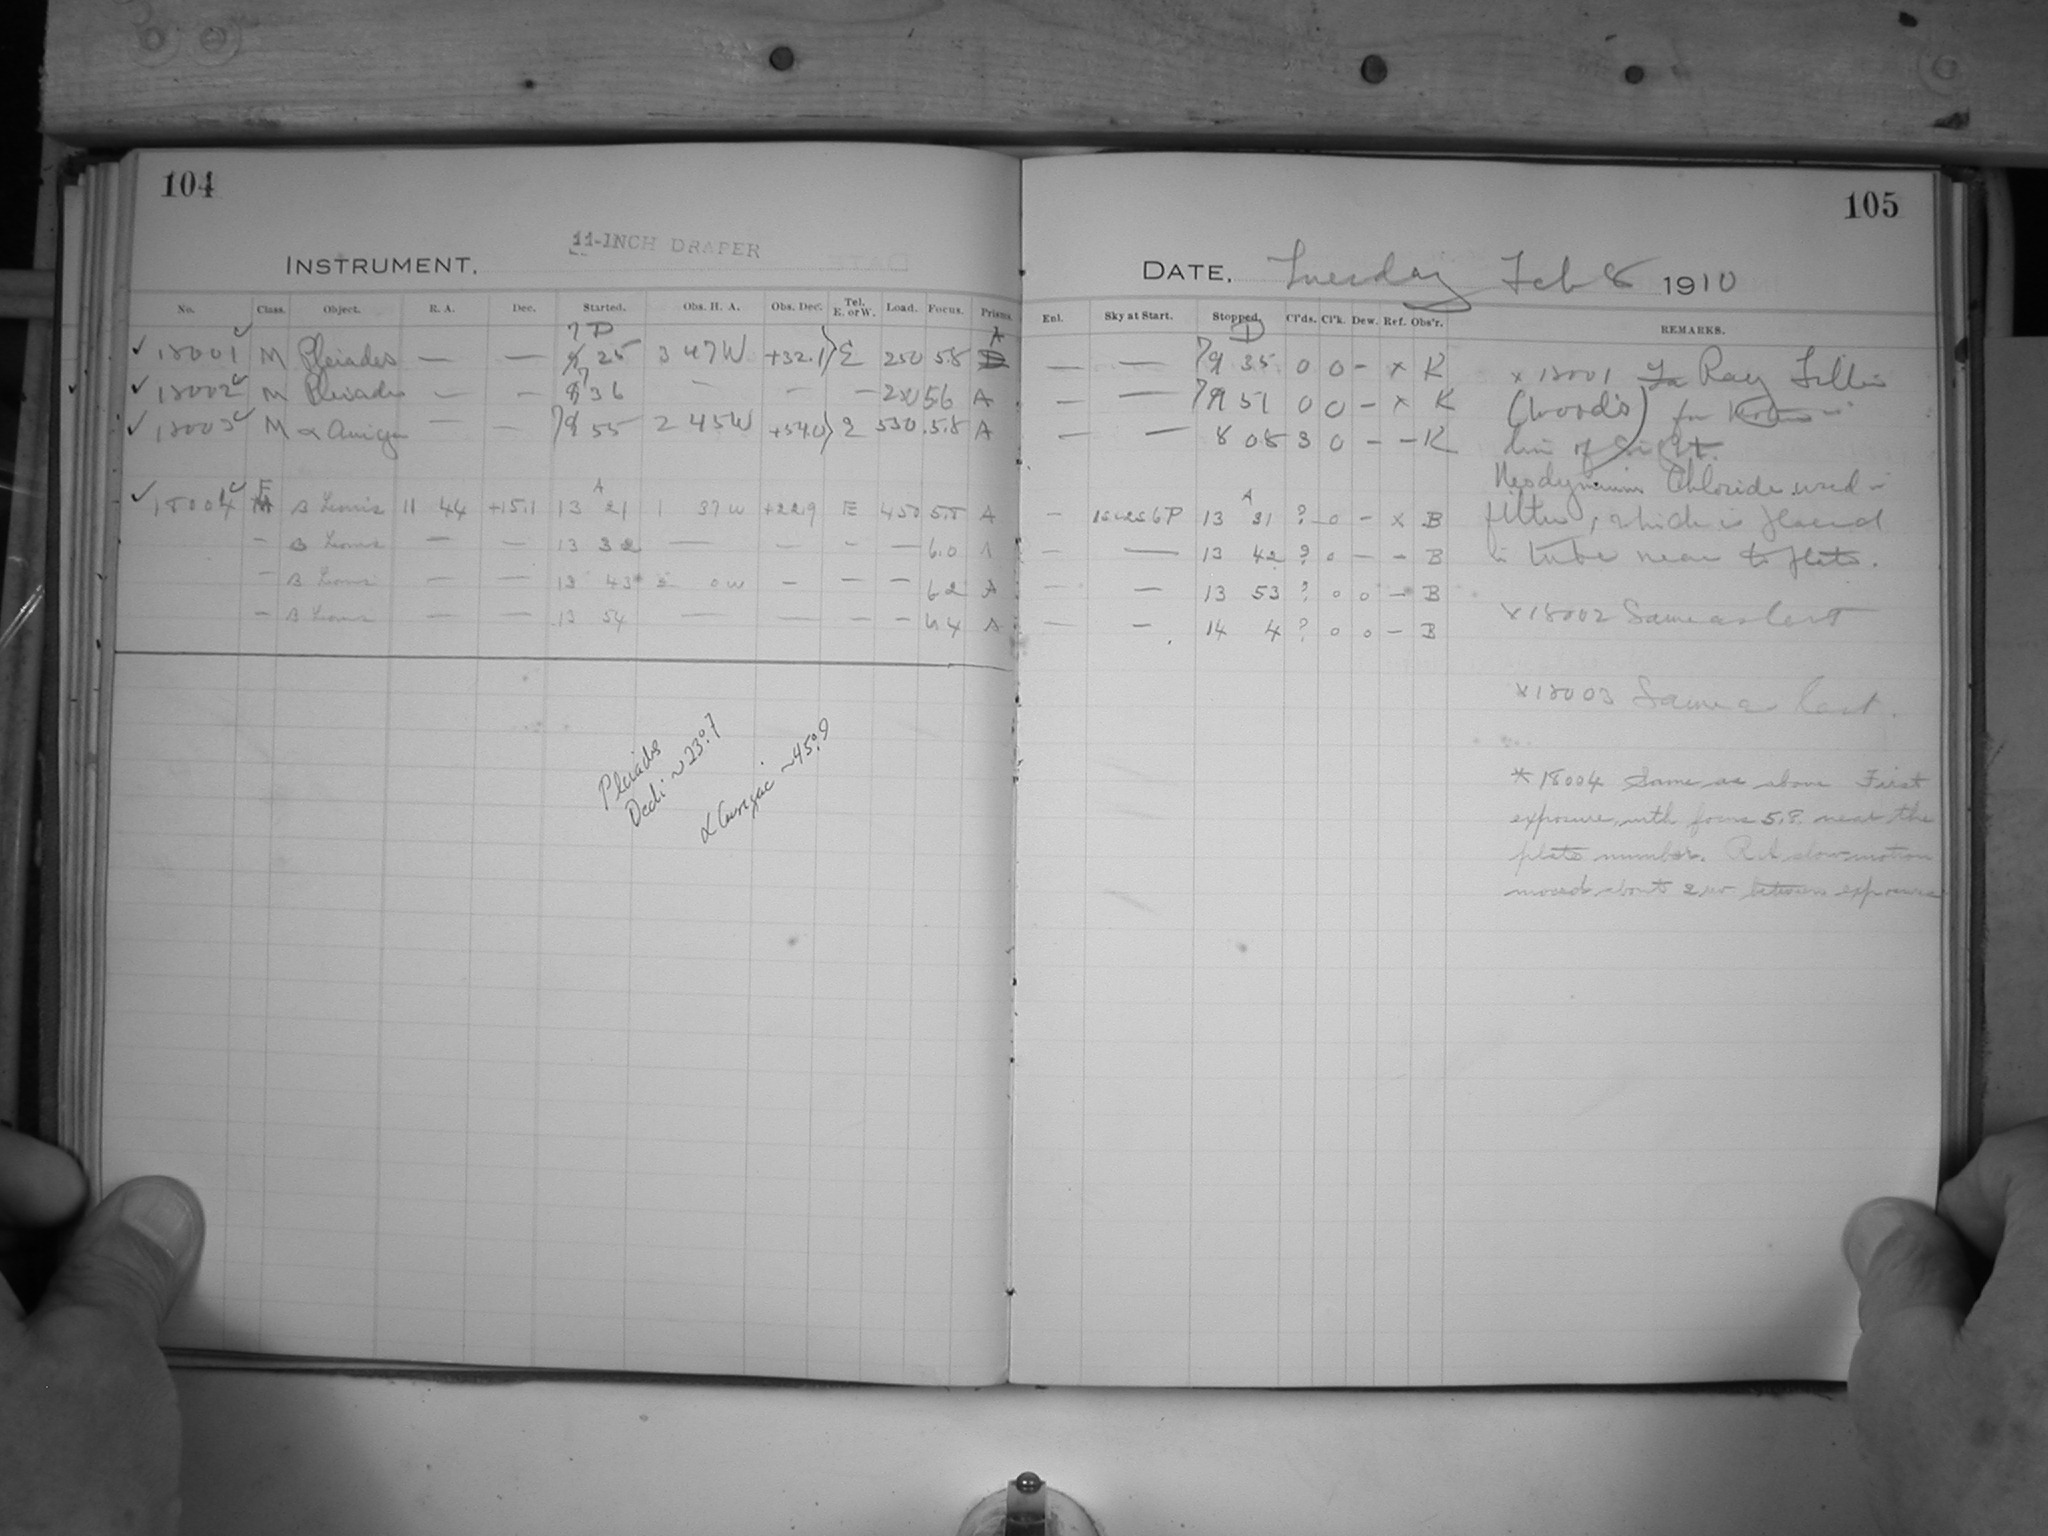 104
11-INCH DRAPER
INSTRUMENT.
No. Class. Object. R. A. Dec. Started. Obs. H. A. Obs. Dec. Tel. E. or W. Load. Focus. Prisms.
18001 M Pleiades — — 7 25 3 47 W +32.1 E 250 5.8 A
18002 M Pleiades — — 7 36 — — — 250 5.6 A
18003 M α Aurigae — — 7 55 2 45 W +54.0 E 530 5.8 A
18004 E β Leonis 11 44 +15.1 13 21 1 37 W +22.9 E 450 5.8 A
— β Leonis — — 13 32 — — — — 6.0 A
— β Leonis — — 13 43 2 0 W — — — 6.2 A
— β Leonis — — 13 54 — — — — 6.4 A
Pleiades
Decl ~ 23°.7
α Aurigae ~45°.9
105
DATE. Tuesday Feb 8 1910
Enl. Sky at Start. Stopped. Cl'ds. Cl'k. Dew. Ref. Obs'r. REMARKS.
— — 7 35 0 0 - x K
— — 7 51 0 0 - x K
— — 8 08 3 0 - - K
— 13 31 ? 0 - x B
— — 13 42 ? 0 - - B
— — 13 53 ? 0 0 - B
— — 14 4 ? 0 0 - B
x 18001 Ray Filter
(Wood's) for
line of sight.
Neodymium Chloride used in
filter, which is placed
in tube near to plate.
x 18002 Same as last
x 18003 Same as last.
* 18004 Same as above First
exposure, with focus 5.8. near the
plate number. R.A. slow-motion
moved about between exposures